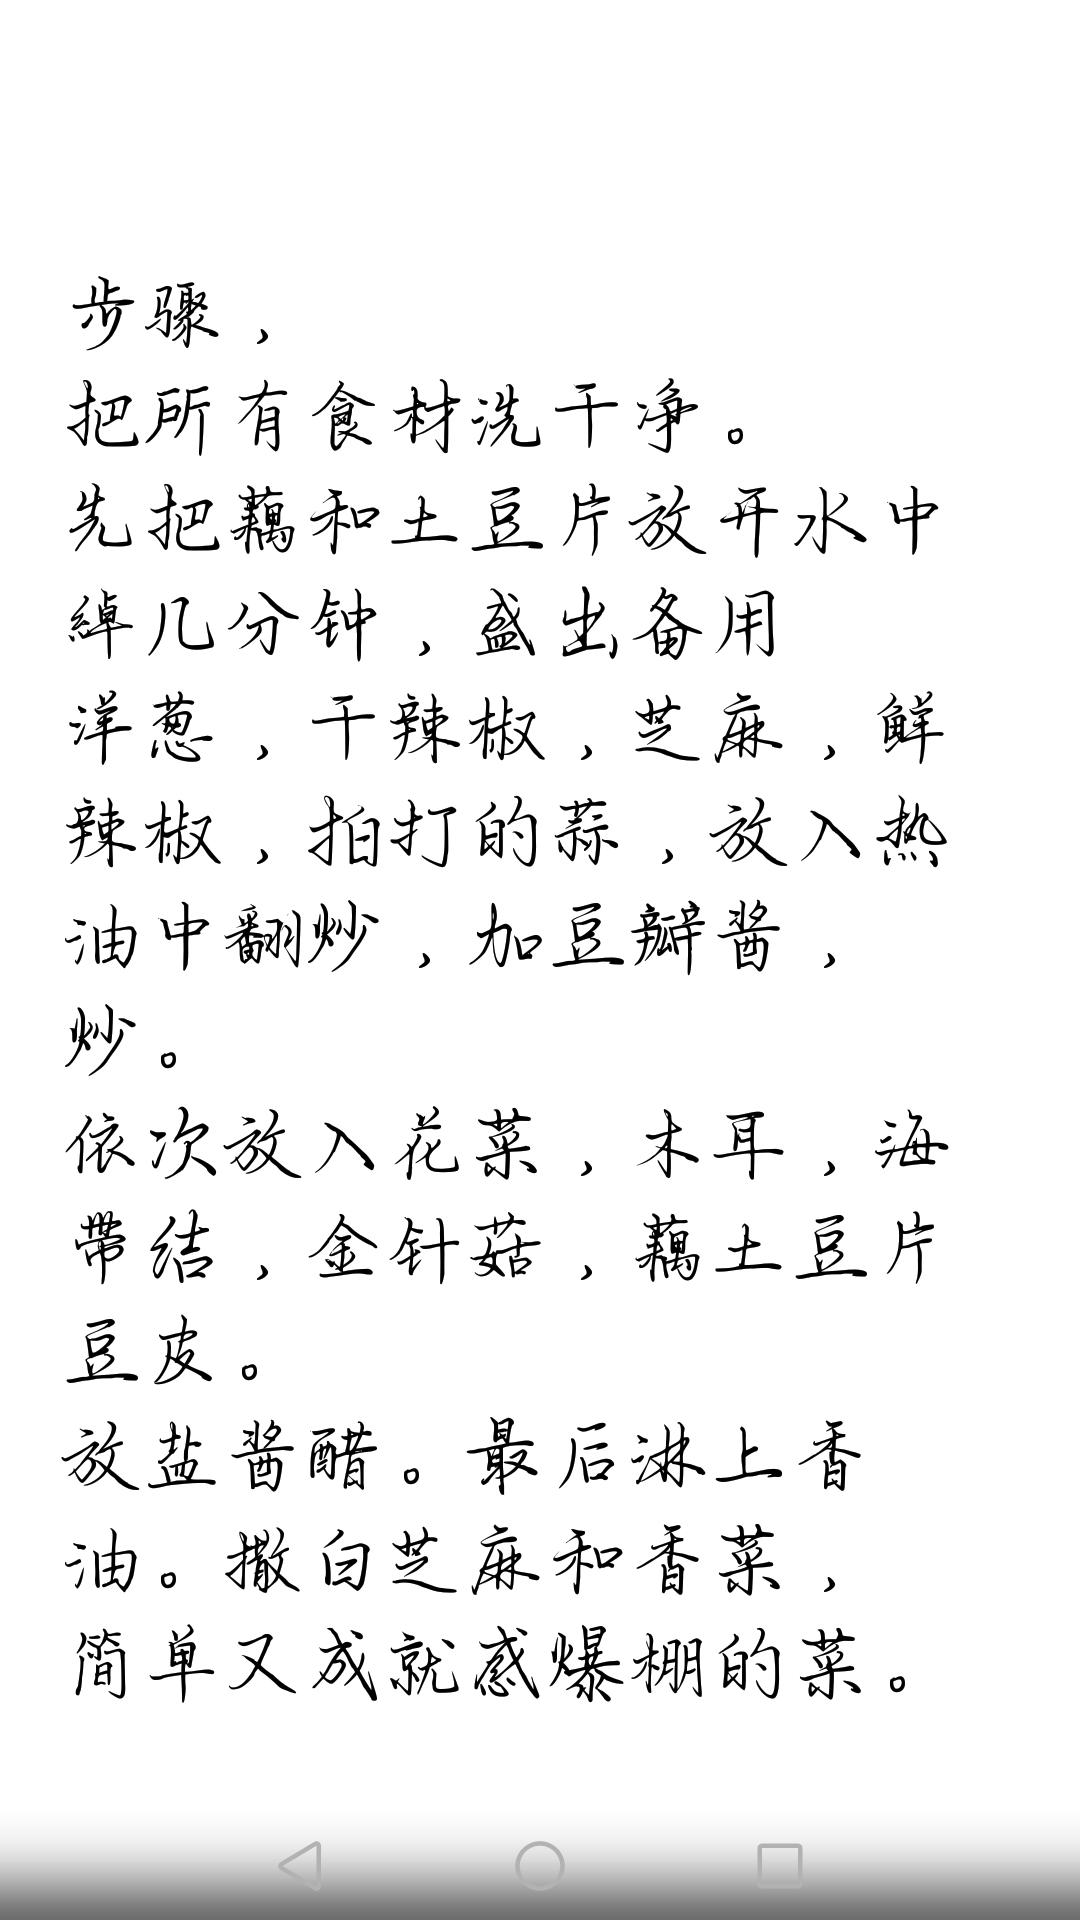 步骤，
把所有食材洗干净。
先把藕和土豆片放开水中
綽几分钟，盛出备用
洋葱，干辣椒，芝麻，鲜
辣椒，拍打的蒜，放入热
油中翻炒，加豆瓣酱，
炒。
依次放入花菜，木耳，海
带结，金针菇，藕土豆片
豆皮。
放盐酱醋。最后淋上香
油。撒白芝麻和香菜，
简单又成就感爆棚的菜。